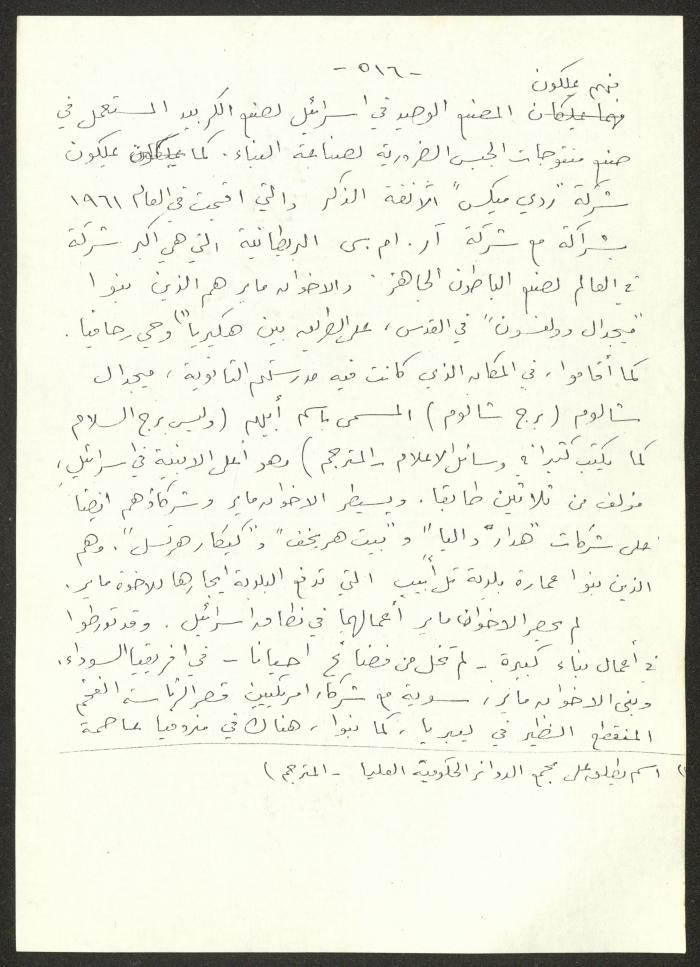 - ٥١٦ -
فهم يملكون
فهما يملكان المصنع الوحيد في اسرائيل لصنع الكربيد المستعمل في
صنع منتوجات الجبس الضرورية لصناعة البناء. كما يملكان يملكون
شركة "ردي ميكس" الآنفة الذكر والتي اقيمت في العام ١٩٦١
بشراكة مع شركة آر. ام. سي البريطانية التي هي اكبر شركة
في العالم لصنع الباطون الجاهز. والاخوان ماير هم الذين بنوا
"ميجدال وولفسون" في القدس، على الطريق بين هكيريا (١) وحي رحافيا.
كما أقاموا، في المكان الذي كانت فيه مدرستهم الثانوية، ميجدال
شالوم (برج شالوم) المسمى باسم أبيهم (وليس برج السلام
كما يكتب كثيرا في وسائل الاعلام - المترجم) وهو أعلى الابنية في اسرائيل،
مؤلف من ثلاثين طابقا. ويسيطر الاخوان ماير وشركاؤهم ايضا
على شركات "هدار داليا" و "بيت هريخف" و "كيكار هرتسل". وهم
الذين بنوا عمارة بلدية تل أبيب التي تدفع البلدية ايجارها للاخوة ماير.
لم يحصر الاخوان ماير أعمالهما في نطاق اسرائيل. وقد تورطوا
في أعمال بناء كبيرة - لم تخل من فضائح احيانا - في افريقيا السوداء.
وبنى الاخوان ماير، سوية مع شركاء امريكيين قصر الرئاسة الفخم
المنقطع النظير في ليبريا، كما بنوا، هناك في منروفيا عاصمة
١) اسم يطلق على مجمع الدوائر الحكومية العليا - المترجم)